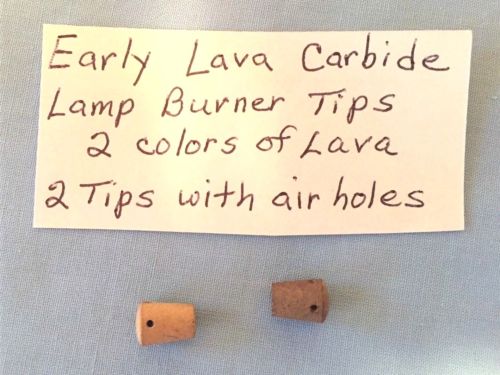 Early Lava Carbide
Lamp Burner Tips
2 colors of Lava
2 Tips with air holes